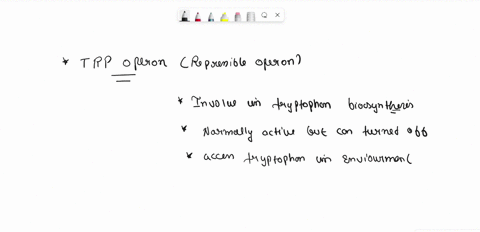 * TRP operon (Repressible operon)
* Involve in tryptophan biosynthesis
* Normally active but can turned off
* access tryptophan in Enviourment